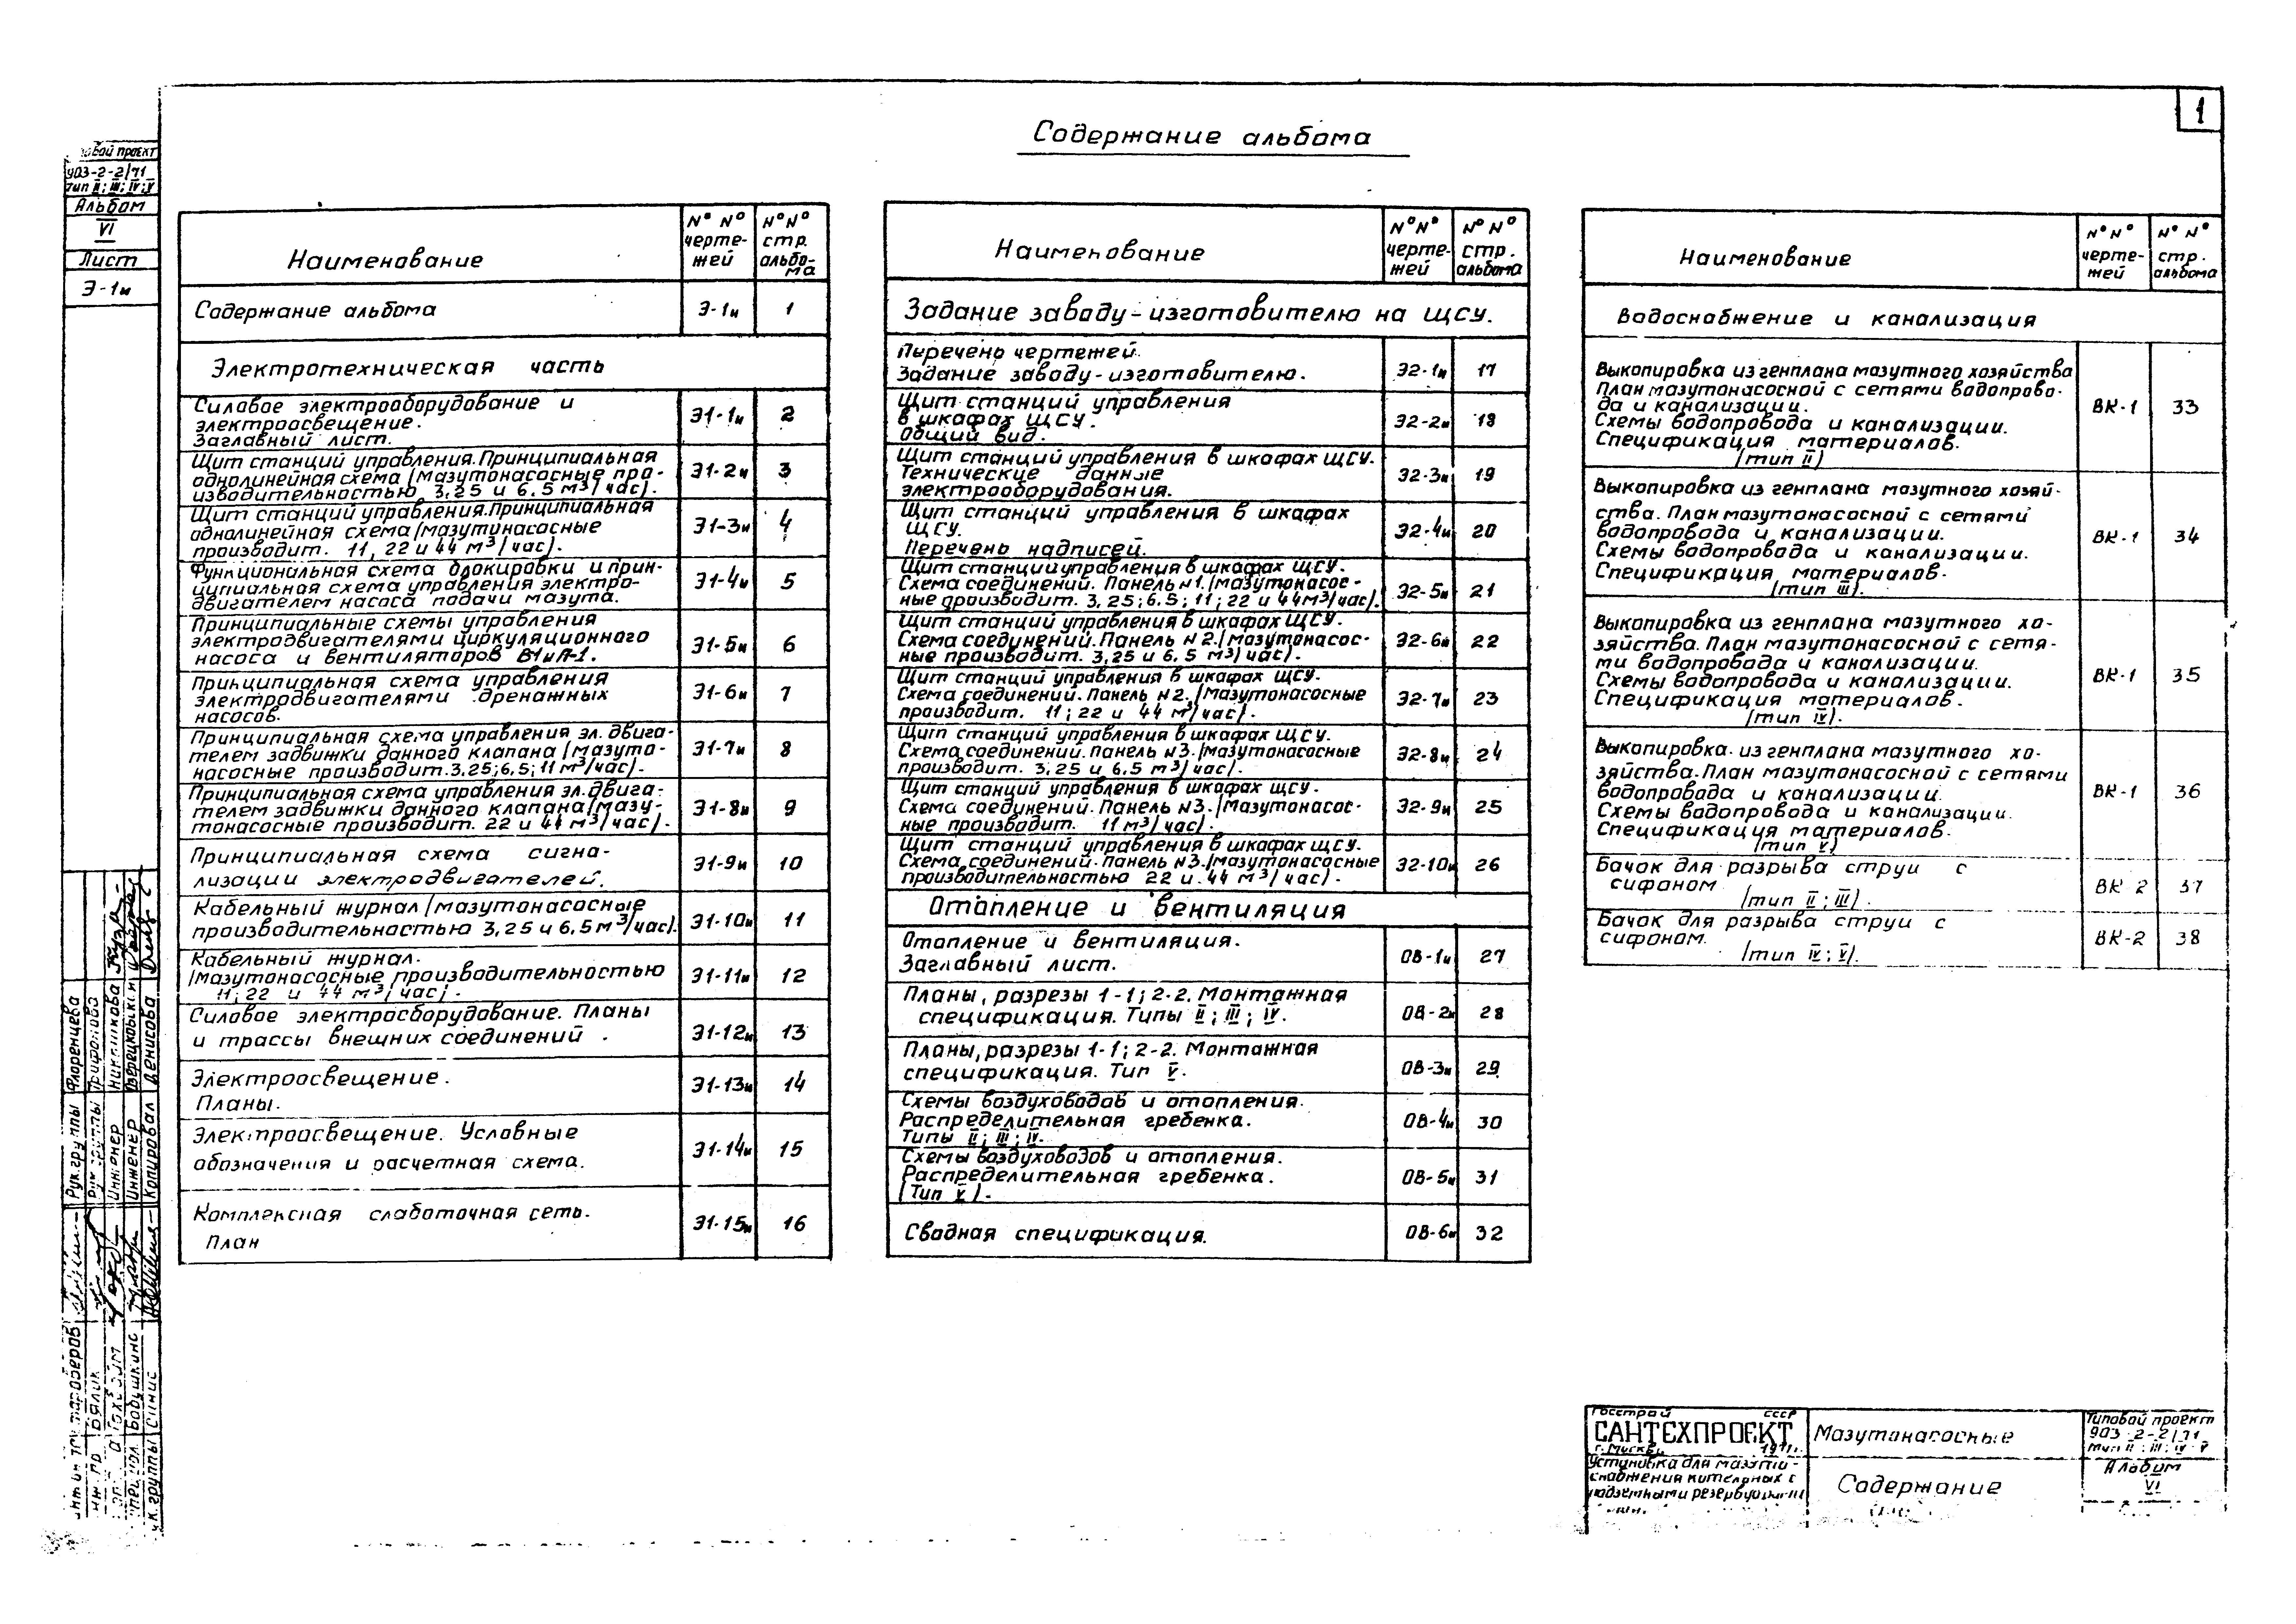 1
Содержание альбома
овой проект
903-2-2/71
тип II; III; IV; V
Альбом
VI
Лист
Э-1и
Наименование
№ №
черте-
жей
№ №
стр.
альбо-
ма
Содержание альбома Э-1и 1
Электротехническая часть
Силовое электрооборудование и
электроосвещение.
Заглавный лист.
Э1-1и 2
Щит станций управления. Принципиальная
однолинейная схема (мазутонасосные про-
изводительностью 3,25 и 6.5 м³/час).
Э1-2и 3
Щит станций управления. Принципиальная
однолинейная схема (мазутинасосные
производит. 11, 22 и 44 м³/час).
Э1-3и 4
Функциональная схема блокировки и прин-
ципиальная схема управления электро-
двигателем насоса подачи мазута.
Э1-4и 5
Принципиальные схемы управления
электродвигателями циркуляционного
насоса и вентиляторов В1иП-1.
Э1-5и 6
Принципиальная схема управления
электродвигателями дренажных
насосов.
Э1-6и 7
Принципиальная схема управления эл. двига-
телем задвижки данного клапана (мазуто-
насосные производит. 3,25; 6,5; 11 м³/час).
Э1-7и 8
Принципиальная схема управления эл. двига-
телем задвижки данного клапана (мазу-
тонасосные производит. 22 и 44 м³/час).
Э1-8и 9
Принципиальная схема сигна-
лизации электродвигателей.
Э1-9и 10
Кабельный журнал (мазутонасосные
производительностью 3,25 и 6.5 м³/час).
Э1-10и 11
Кабельный журнал.
(Мазутонасосные производительностью
11; 22 и 44 м³/час).
Э1-11и 12
Силовое электросборудование. Планы
и трассы внешних соединений.
Э1-12и 13
Электроосвещение.
Планы.
Э1-13и 14
Электроосвещение. Условные
обозначения и расчетная схема.
Э1-14и 15
Комплексная слаботочная сеть.
План
Э1-15и 16
Наименование
№ №
черте-
жей
№ №
стр.
альбома
Задание заводу-изготовителю на ЩСУ.
Перечень чертежей.
Задание заводу-изготовителю.
Э2-1и 17
Щит станций управления
в шкафах ЩСУ.
Общий вид.
Э2-2и 18
Щит станций управления в шкафах ЩСУ.
Технические данные
электрооборудования.
Э2-3и 19
Щит станций управления в шкафах
ЩСУ.
Перечень надписей.
Э2-4и 20
Щит станции управления в шкафах ЩСУ.
Схема соединений. Панель N1. (мазутонасос-
ные производит. 3,25; 6.5; 11; 22 и 44 м³/час).
Э2-5и 21
Щит станций управления в шкафах ЩСУ.
Схема соединений. Панель N2. (мазутонасос-
ные производит. 3,25 и 6.5 м³/час).
Э2-6и 22
Щит станций управления в шкафах ЩСУ.
Схема соединений. Панель N2. (Мазутонасосные
производит. 11; 22 и 44 м³/час).
Э2-7и 23
Щит станций управления в шкафах ЩСУ.
Схема соединений. Панель N3. (мазутонасосные
производит. 3,25 и 6.5 м³/час).
Э2-8и 24
Щит станций управления в шкафах щсу.
Схема соединений. Панель N3. (Мазутонасос-
ные производит. 11 м³/час).
Э2-9и 25
Щит станций управления в шкафах щсу.
Схема соединений. Панель N3. (мазутонасосные
производительностью 22 и 44 м³/час).
Э2-10и 26
Отопление и вентиляция
Отопление и вентиляция.
Заглавный лист.
ОВ-1и 27
Планы, разрезы 1-1; 2-2. Монтажная
спецификация. Типы II; III; IV.
ОВ-2и 28
Планы, разрезы 1-1; 2-2. Монтажная
спецификация. Тип V.
ОВ-3и 29
Схемы воздуховодов и отопления.
Распределительная гребенка.
Типы II; III; IV.
ОВ-4и 30
Схемы воздуховодов и отопления.
Распределительная гребенка.
(Тип V).
ОВ-5и 31
Сводная спецификация. ОВ-6и 32
Наименование
№ №
черте-
жей
№ №
стр.
альбома
Водоснабжение и канализация
Выкопировка из генплана мазутного хозяйства
План мазутонасосной с сетями водопрово-
да и канализации.
Схемы водопровода и канализации.
Спецификация материалов.
(тип II)
ВК-1 33
Выкопировка из генплана мазутного хозяй-
ства. План мазутонасосной с сетями
водопровода и канализации.
Схемы водопровода и канализации.
Спецификация материалов.
(тип III).
ВК-1 34
Выкопировка из генплана мазутного хо-
зяйства. План мазутонасосной с сетя-
ми водопровода и канализации.
Схемы водопровода и канализации.
Спецификация материалов.
(тип IV).
ВК-1 35
Выкопировка из генплана мазутного хо-
зяйства. План мазутонасосной с сетями
водопровода и канализации.
Схемы водопровода и канализации.
Спецификация материалов.
(тип V)
ВК-1 36
Бачок для разрыва струи с
сифоном
(тип II; III).
ВК 2 37
Бачок для разрыва струи с
сифоном.
(тип IV; V).
ВК-2 38
Рук. группы Флоренцева
Инженер
Инженер
Копировал Денисова
Госстрой СССР
САНТЕХПРОЕКТ
г. Москва 1971г.
Установка для мазуто-
снабжения котельных с
надземными резервуарами
Мазутонасосные
Содержание
Типовой проект
903-2-2/71
тип II; III; IV; V
Альбом
VI